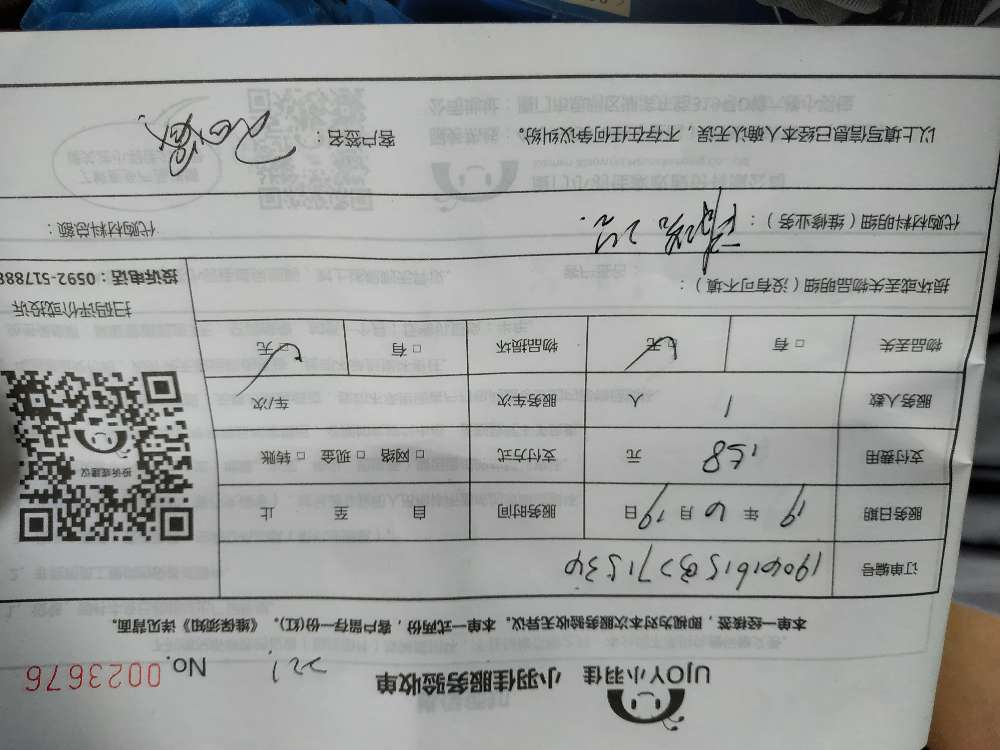 UJOY小羽佳 小羽佳服务验收单 No. 0023676
本单一经核签,即视为对本次服务验收无异议。本单一式两份,客户留存一份(红)。《维保须知》详见背面。
订单编号
服务日期 19 年 6 月 19 日 服务时间 自 至 止
支付费用 158 元 支付方式 □ 网络 □ 现金 □ 转账
服务人数 1 人 服务车次 车/次
物品丢失 □ 有 □ 无 物品损坏 □ 有 □ 无
损坏或丢失物品明细(没有可不填):
投诉或建议
扫码评价或投诉
投诉电话:0592-517888
代购材料明细(维修业务):
代购材料总额:
以上填写信息已经本人确认无误,不存在任何争议纠纷。 客户签名: